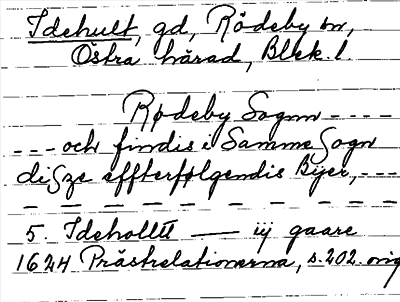 Idehult, gd, Rödeby sn,
Östra härad, Blek. l.
Rødeby Sogn ----
--- och findis i Samme Sogn
disze effterfølgendis Byer, ---
5. Ideholltt — iij gaare
1624 Prästrelationerna, s. 202. orig